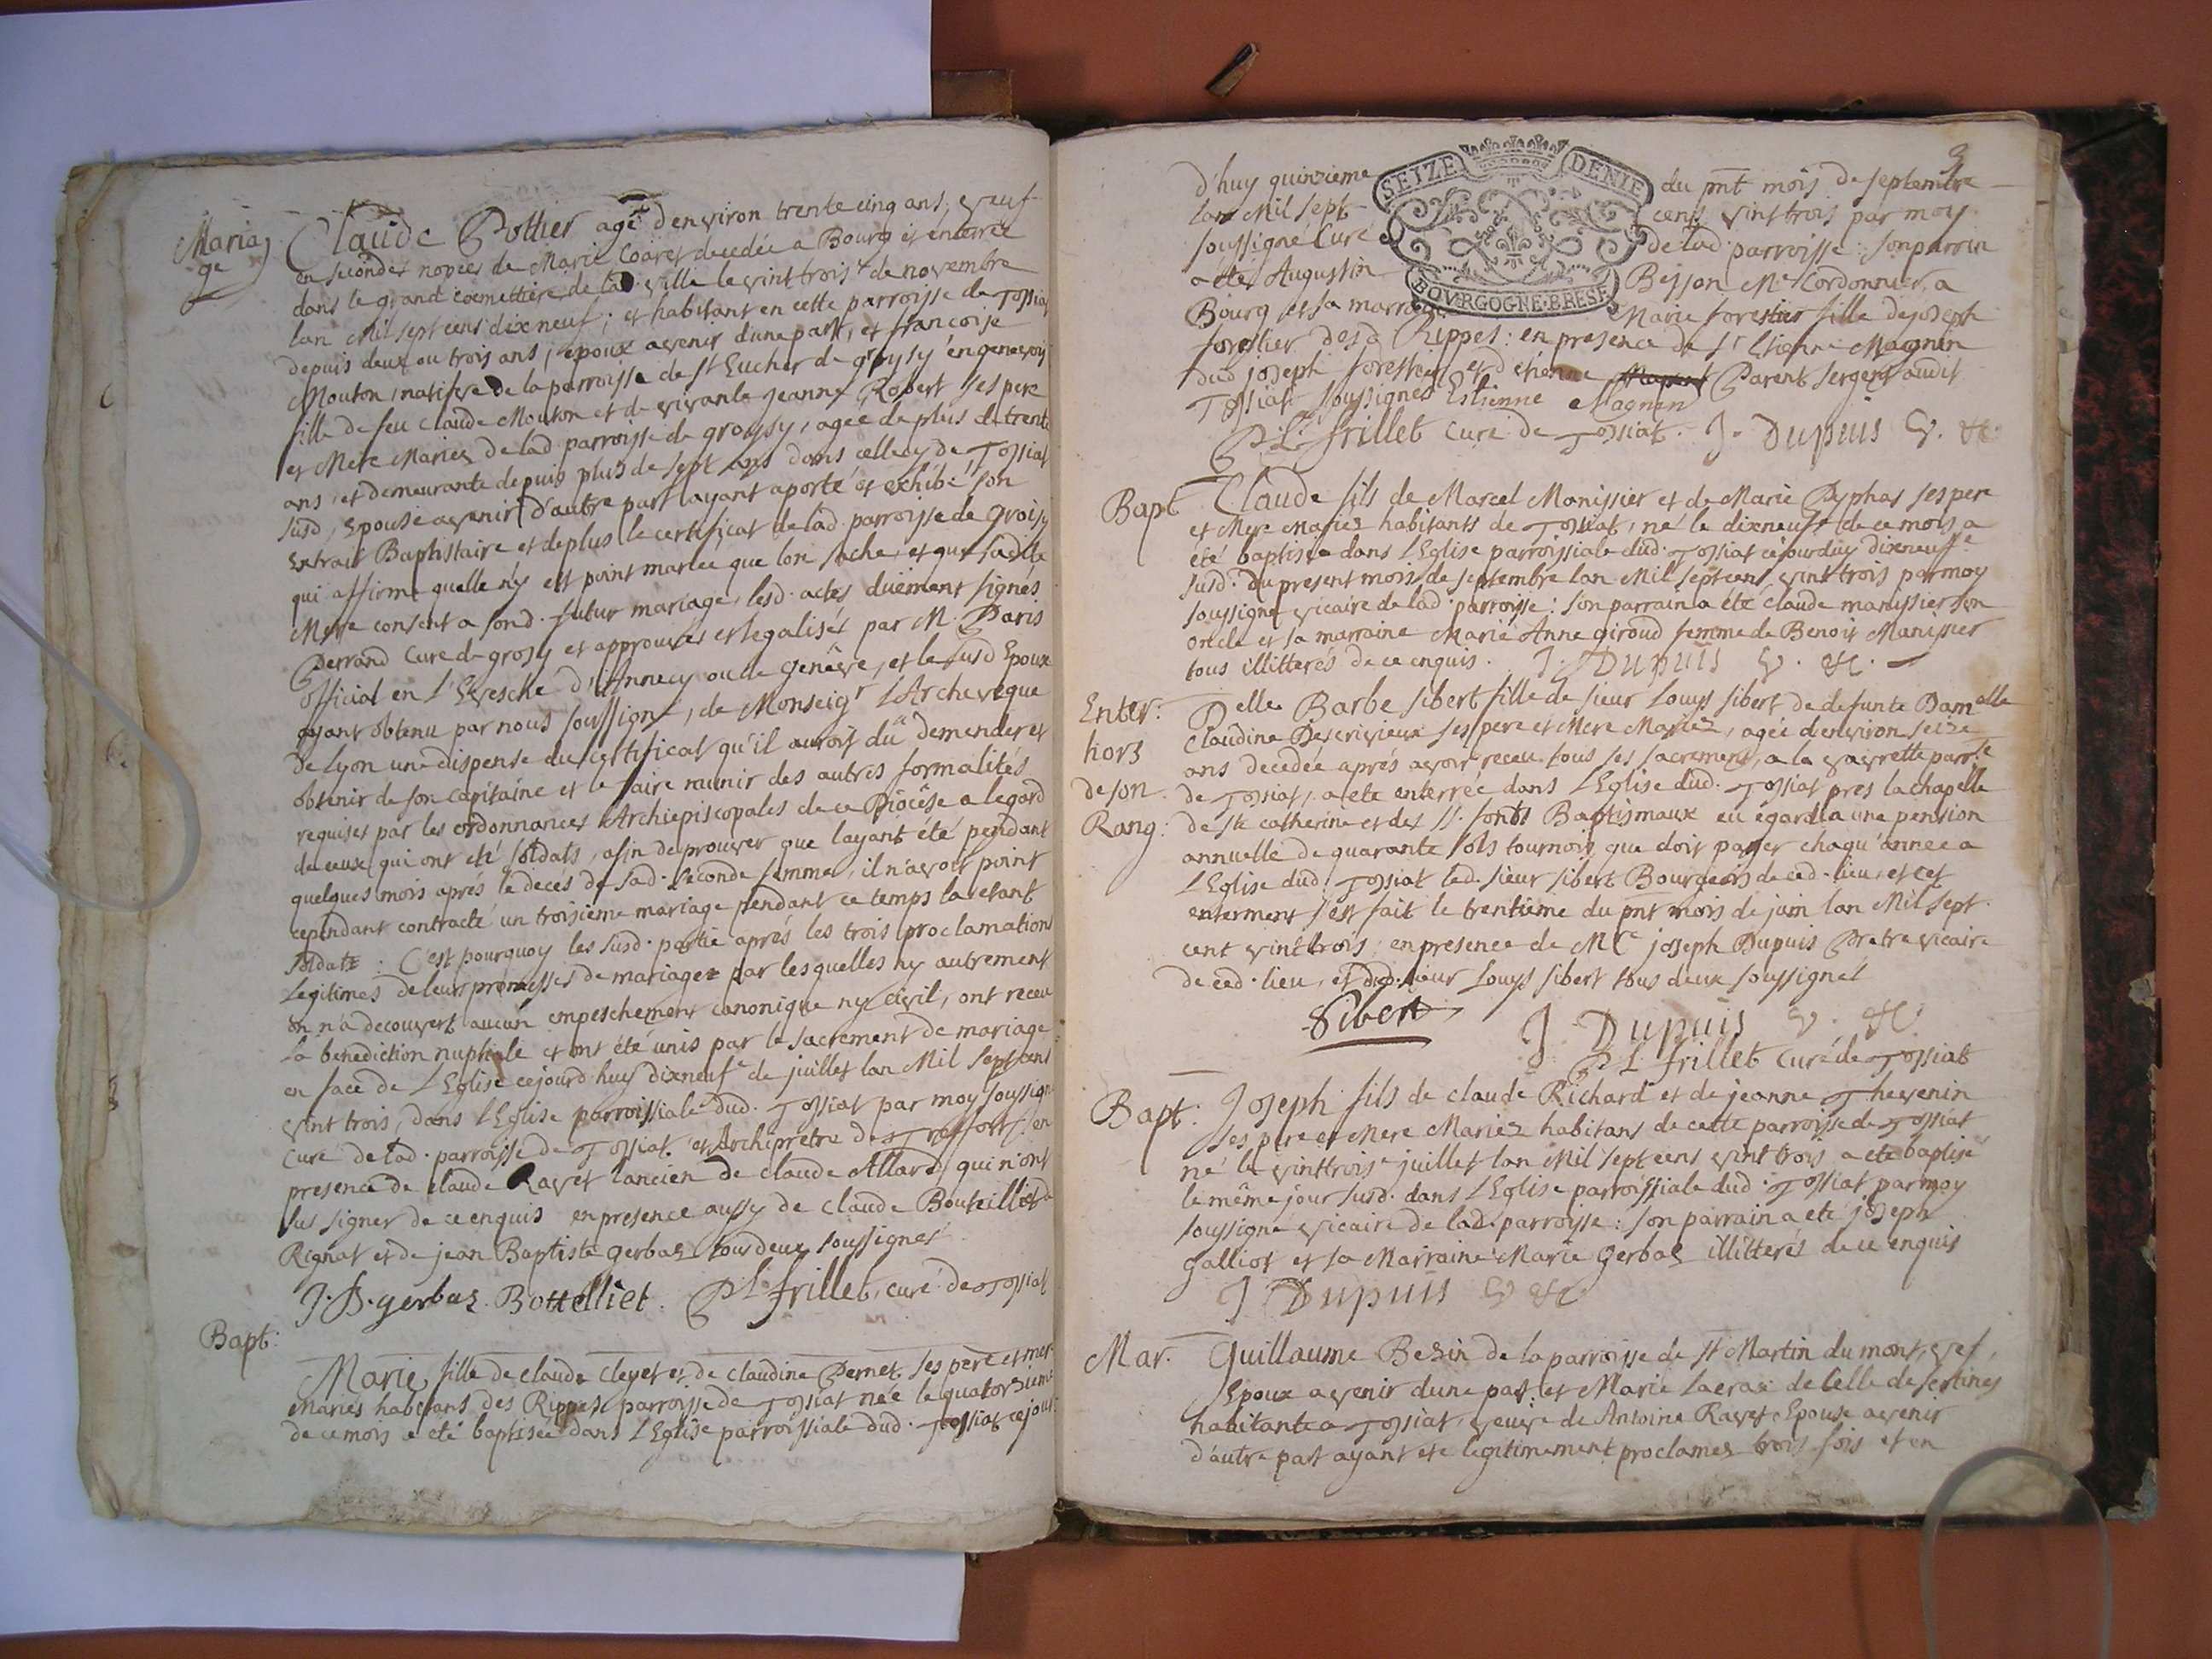 Maria
ge
Claude Pottier agé denviron trente cinq ans, veuf
en secondes nopces de Marie Coares decedée a Bourg et enterrée
dans le grand cœmettiere de lad. ville le vint trois.e de novembre
lan Mil sept cens dix neuf; et habitant en cette parroisse de Tossiat
depuis deux ou trois ans, epoux avenir dune part, et francoise
Mouton, native de la parroisse de st Eucher de groysy en genevois
fille de feu Claude Mouton et de vivante Jeanne Robert ses pere
et Mere Mariez de lad. parroisse de groysy, agée de plus de trente
ans, et demeurante depuis plus de sept ans dans celle cy de Tossiat
susd, Epouse avenir d'autre part ayant aporté et exhibé son
Extrait Baptistaire et de plus le certificat de lad. parroisse de Groisy
qui affirme quelle n'y est point mariée que lon sache, et que sadite
Mere consent a sond. futur mariage, lesd. actes duëment signés
Perrand Curé de grosy et approuvés et legalisés par M. Paris
official en l'Evesché d'Annecy ou de Genêve, et le susd Epoux
ayant obtenu par nous soussigné, de Monseigr L'Archeveque
de Lyon une dispense du certificat qu'il auroit dû demender et
obtenir de son capitaine et le faire munir des autres formalités
requises par les ordonnances Archiepiscopales de ce Diocêse a legard
de ceux qui ont eté soldats, afin de prouver que layant été pendant
quelques mois aprés le decés de sad. seconde femme, il n'avoit point
cependant contracté un troisieme mariage pendant ce temps la etant
soldats: C'est pourquoy les susd. partie aprés les trois proclamations
Legitimes de leurs promesses de mariage par lesquelles ny autrement
on n'a decouvert aucun empeschement canonique ny civil, ont receu
la benediction nuptiale et ont été unis par le sacrement de mariage
en face de L'Eglise cejourd'huy dixneuf.e de juillet lan Mil sept cens
vint trois, dans l'Eglise parroissiale dud. Tossiat par moy soussigné
Curé de lad. parroisse de Tossiat et Archiprêtre de Treffort, en
presence de claude Ravet lancien de claude Allard, qui n'ont
sus signer de ce enquis en presence aussy de Claude Bouteillet de
Rignat et de jean Baptiste gerbaz tous deux soussignés
J. B. gerbaz. Bottelliet. P L frillet, curé de Tossiat
Bapt:
Marie fille de claude Cleyet et de claudine Pernet ses pere et mere
Mariés habitans des Rippes parroisse de Tossiat née le quatorzieme
de ce mois a eté baptisée dans L'Eglise parroissiale dud. Tossiat cejour
3
SEIZE DENIE
BOVRGOGNE·BRESE
d'huy quinzieme du pnt mois de septembre
lan Mil sept cens vint trois par moy
soussigné Curé de lad. parroisse: son parrin
a été Augustin Besson Me Cordonnier, a
Bourg et sa marraine Marie forestier fille de joseph
forestier desd Rippes: en presence de Sr Etienne Magnin
dud joseph forestier et d'étienne Parent sergent audit
Tossiat soussignés Estienne Magnin
P. L. frillet Curé de Tossiat. J. Dupuis V. &c.
Bapt
Claude fils de Marcel Monissier et de Marie Pyphas ses pere
et Mere Mariez habitants de Tossiat, né le dixneuf.e de ce mois, a
été baptisé dans L'Eglise parroissiale dud. Tossiat cejourduy dixneuf.e
susd. du present mois de septembre lan Mil sept cens vint trois par moy
soussigné vicaire de lad. parroisse: son parrain a été claude manissier son
oncle et sa marraine Marie Anne giroud femme de Benoit Manissier
tous illitterés de ce enquis. J. Dupuis V. &c.
Enter:
hors
de son
Rang:
Delle Barbe sibert fille de sieur Louys sibert de defunte Damelle
Claudine ses pere et Mere Mariez, agée denviron seize
ans decedée aprés avoir receu tous ses sacrements, a la vavrette parr.e
de Tossiat, a ete enterrée dans L'Eglise dud. Tossiat pres la chapelle
de ste catherine et des SS. fonts Baptismaux eu égard a une pension
annuelle de quarante sols tournois que doit payer chaqu'année a
L'Eglise dud. Tossiat led. sieur sibert Bourgeois de ced. lieu, et cet
enterment s'est fait le trentieme du pnt mois de juin lan Mil sept
cent vint trois, en presence de Mre joseph Dupuis Prêtre vicaire
de ced. lieu, et dud. sieur Louys sibert tous deux soussignés
Sibert J. Dupuis V. &c.
P L frillet Curé de Tossiat
Bapt:
Joseph fils de claude Richard et de jeanne Thevenin
ses pere et Mere Mariez habitans de cette parroisse de Tossiat
né le vint trois.e juillet lan Mil sept cens vint trois a eté baptisé
le même jour susd. dans L'Eglise parroissiale dud. Tossiat par moy
soussigné vicaire de lad. parroisse: son parrain a eté joseph
galliot et sa Marraine Marie Gerbaz illitterés de ce enquis
J Dupuis V &c
Mar.
Guillaume Besin de la parroisse de St Martin du mont, vef,
Epoux avenir dune part et Marie de Celle de sertines
habitante a Tossiat, veuve de Antoine Ravet Epouse avenir
d'autre part ayant ete legitimement proclamez trois fois et en